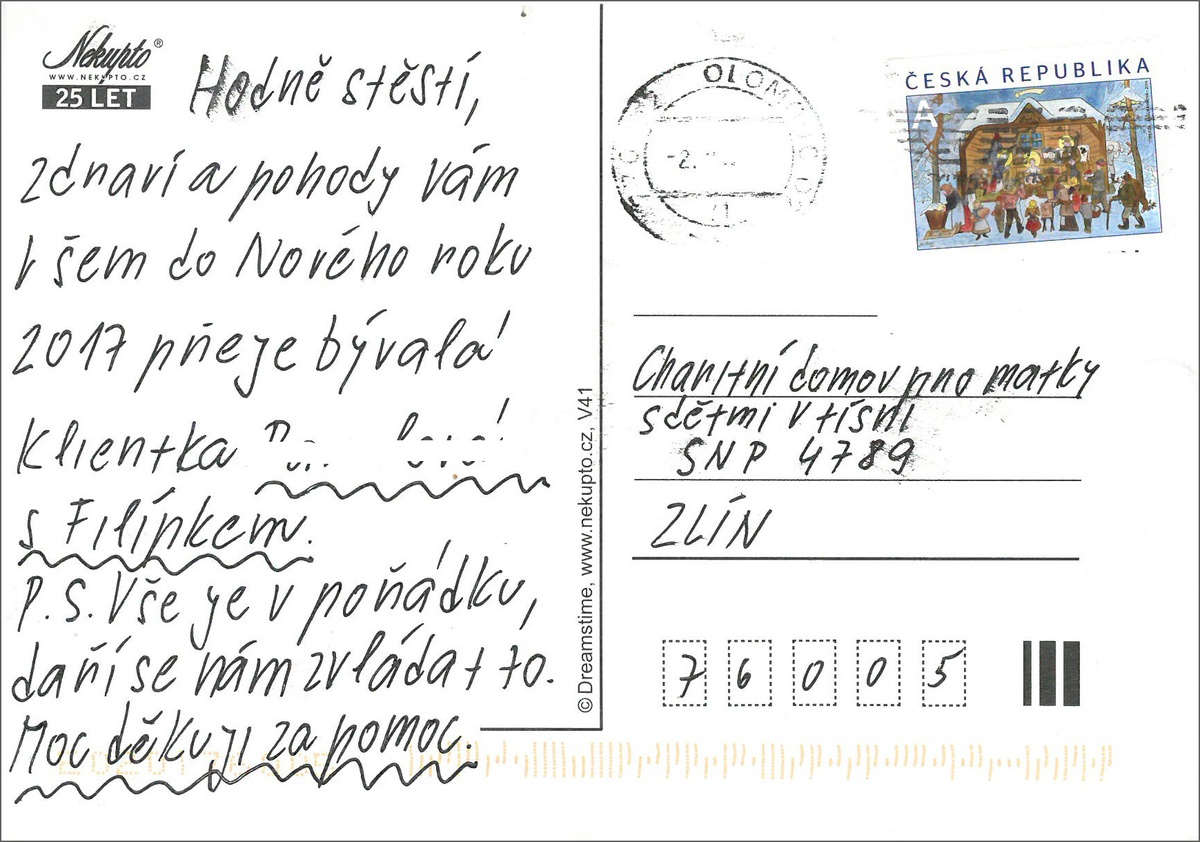 Nekupto®
WWW.NEKUPTO.CZ
25 LET
Hodně stěstí,
zdraví a pohody vám
všem do Nového roku
2017 přeje bývalá
klientka
s Filípkem.
P.S. Vše je v pořádku,
daří se nám zvládat to.
Moc děkuji za pomoc.
© Dreamstime, www.nekupto.cz, V41
OLOMOUC
ČESKÁ REPUBLIKA
A
Charitní domov pro matky
s dětmi v tísni
SNP 4789
ZLÍN
76005